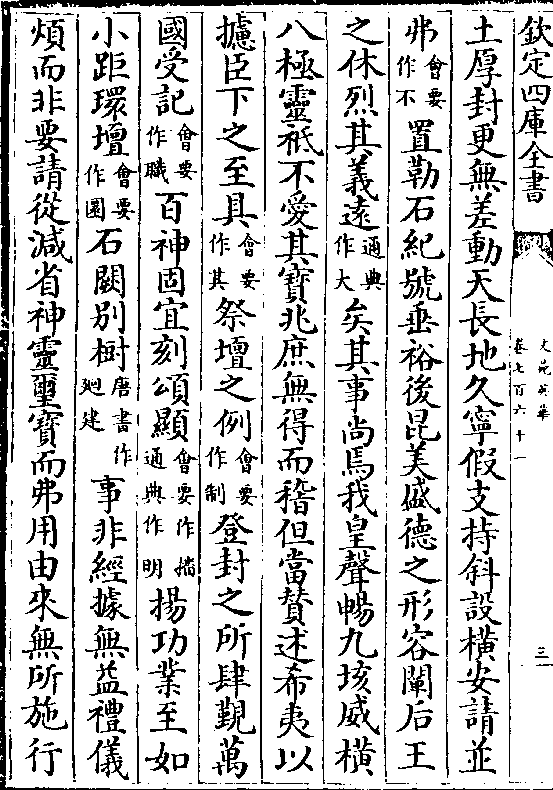 欽定四庫全書
文苑英華
卷七百六十一
三
土厚封更無差動天長地久寧假支持斜設横安請並
弗會要作不置勒石紀號垂裕後昆美盛德之形容闡后王
之休烈其義遠通典作大矣其事尚焉我皇聲暢九垓威横
八極靈祇不愛其寶兆庶無得而稽但當賛述希夷以
攄臣下之至具會要作其祭壇之例會要作制登封之所肆覲萬
國受記會要作職百神固宜刻頌顯會要作播通典作明揚功業至如
小距環壇會要作圜石闕别樹唐書作廻建事非經據無益禮儀
煩而非要請從減省神靈璽寶而弗用由來無所施行